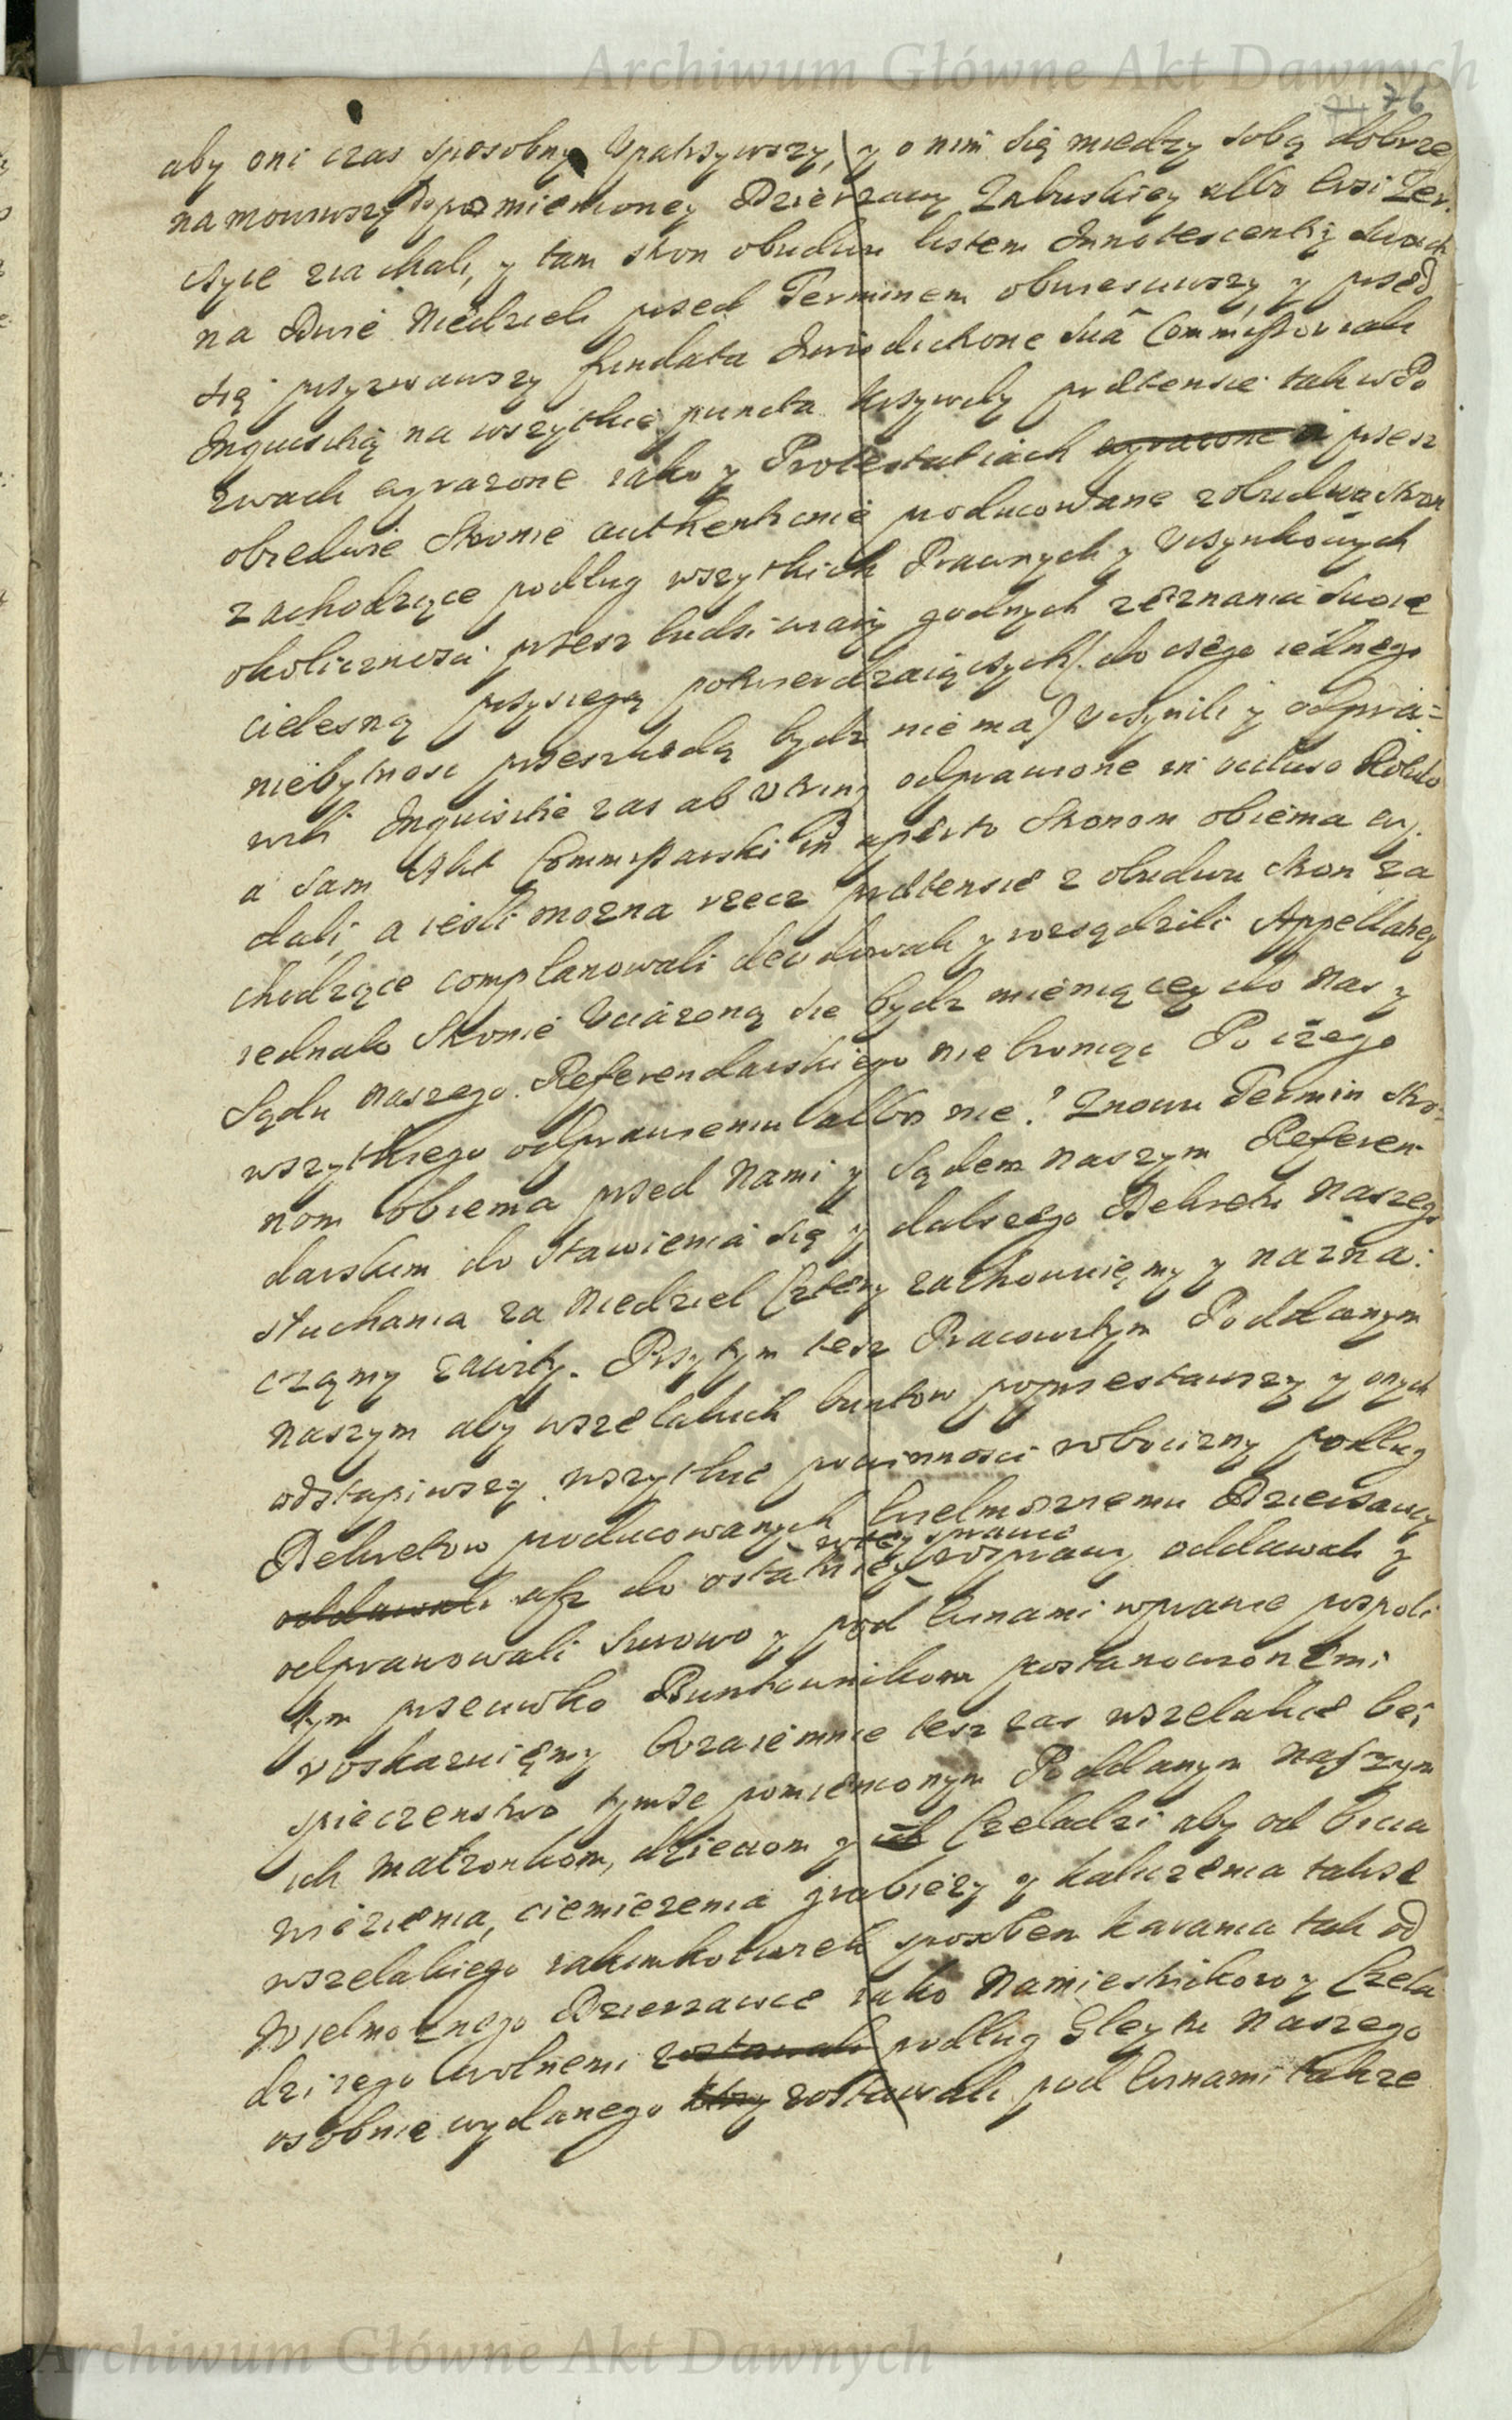 Archiwum Główne Akt Dawnych
74 76
aby oni czas sposobny upatrzywszy, y o nim się miedzy sobą dobrze
namowiwszy do pomienioney Dzierzawy Zabuskiey albo Wsi
ziachali, y tam stron obudwu listem Innotescentiy dwoch
na Dwie Niedzieli przed Terminem obwiesciwszy, y przed
się przyzwawszy fundata Jurisdictione suâ Commissoriali
Inquisitią na wszytkie puncta krzywdy praetensie tak w Po
zwach wyrazone iako y Protestatiach wyrazone przez
obiedwie Stronie authenticnie producowane z obudwu stron
zachodzące podług wszytkich Prawnych y Uczynkowych
okolicznosci przez ludzi wiary godnych zeznania swoie
cielesną przysięgą potwierdzaiących (do czego iednego
niebytnosc przeszkodą bydz nie ma) uczynili y odpra=
wili Inquisitie zas ab utrinq odprawione in clauso Rotulo
a sam Akt Commissarski in aperto Stronom obiema wy
dali, a iesli mozna rzecz praetensie z obudwu stron za
chodzące complanowali decidowali y rozsądzili Appellatiey
iednak Stronie Uciązoną się bydz mieniącey do Nas y
Sądu Naszego Referendarskiego nie broniąc Po czego
wszytkiego odprawieniu albo nie? Znowu Termin Stro=
nom obiema przed Nami y Sądem Naszym Referen
darskim do stawienia się y dalszego Dekretu Naszego
słuchania za Niedziel Cztery zachowuięmy y nazna:
czamy zawity. Przytym tesz Pracowitym Poddanym
Naszym aby wszelakich buntow poprzestawszy y onych
odstąpiwszy wszytkie powinnosci robocizny podług
Dekretow producowanych Wielmoznemu Dzierzawcy
w tey sprawie
oddawali asz do ostatniey rosprawy oddawali y
odprawowali surowo y pod Winami w prawie pospoli
tym przeciwko Buntownikom postanowionemi
roskazuięmy Wzaiemnie tesz zas wszelakie bes
pieczenstwo tymze pomienionym Poddanym Naszym
ich Małzonkom, dzieciom y ich Czeladzi aby od bicia
więzienia, ciemięzenia grabiezy y kaliczenia także
wszelakiego iakimkolwiek sposobem karania tak od
Wielmoznego Dzierzawce iako Namiestnikow y Czela
dzi iego wolnemi zostawali podług Gleytu Naszego
osobnie wydanego zostawali pod Winami takze
Archiwum Główne Akt Dawnych